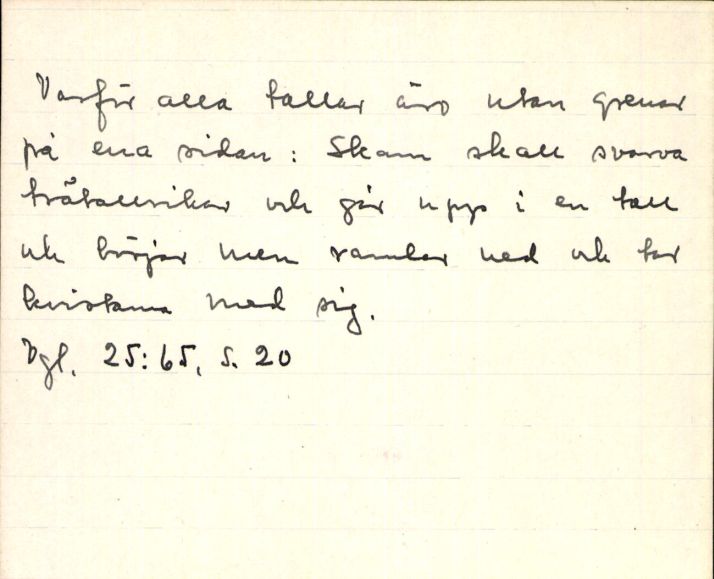 Varför alla tallar äro utan grenar
på ena sidan: Skam skall svarva
trätallrikar och går upp i en tall
och börjar men ramlar ned och tar
kvistarna med sig.
Vgl. 25:65, s. 20